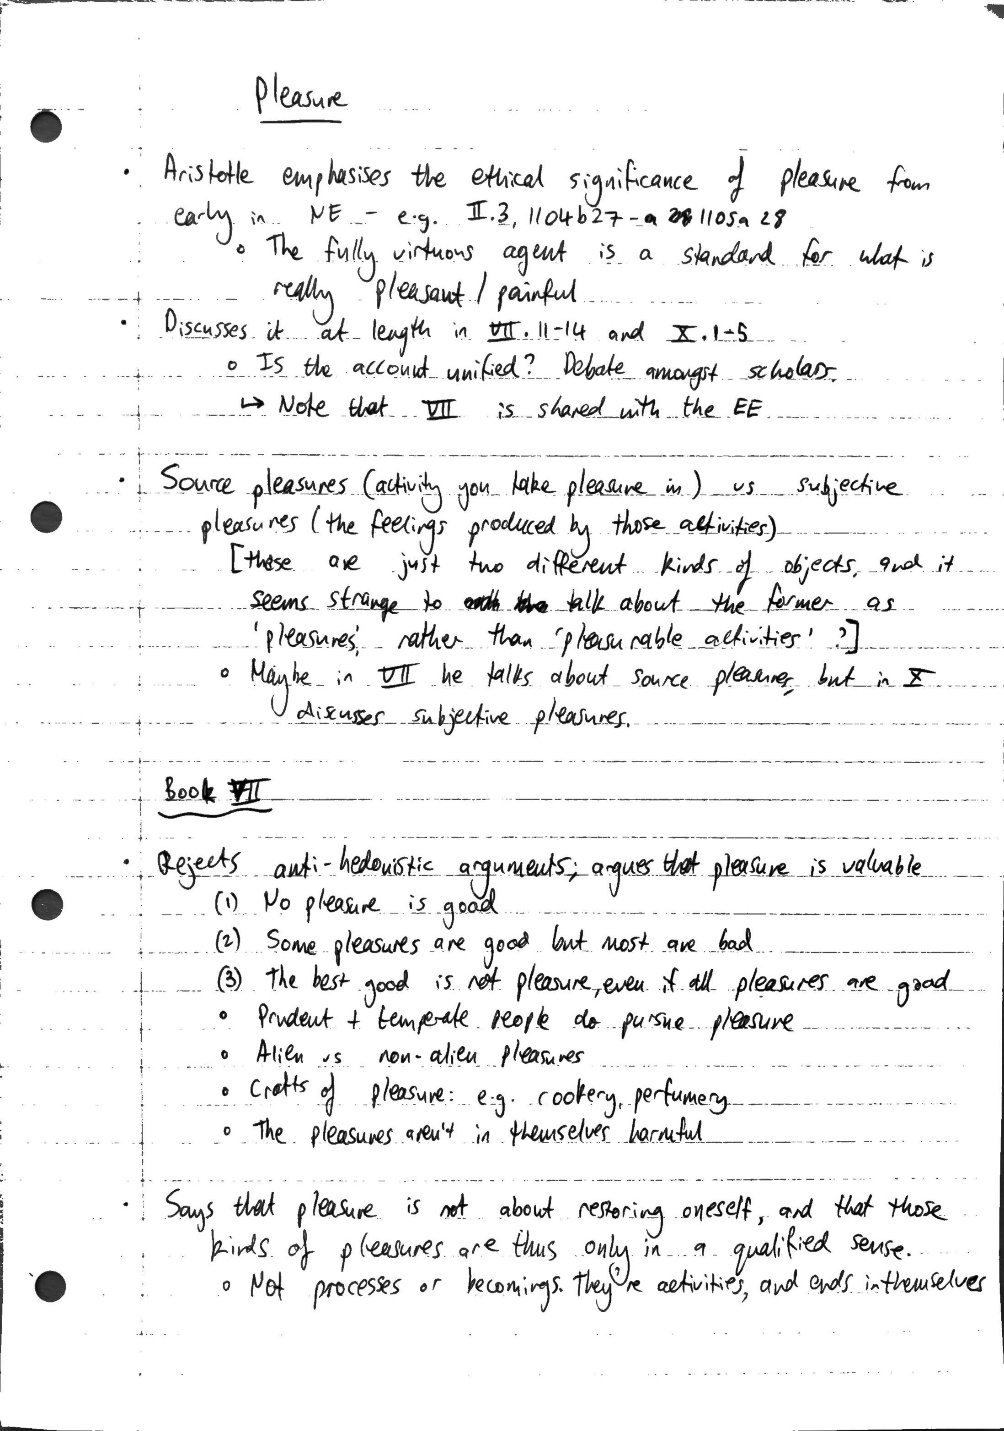 Pleasure
• Aristotle emphasises the ethical significance of pleasure from
early in NE - e.g. II.3, 1104b27-a 1105a28
o The fully virtuous agent is a standard for what is
really pleasant / painful
• Discusses it at length in VII.11-14 and X.1-5
o Is the account unified? Debate amongst scholars.
↳ Note that VII is shared with the EE
• Source pleasures (activity you take pleasure in) vs subjective
pleasures (the feelings produced by those activities)
[these are just two different kinds of objects, and it
seems strange to talk about the former as
'pleasures', rather than 'pleasurable activities'?]
o Maybe in VII he talks about source pleasures, but in X
discusses subjective pleasures.
Book VII
• Rejects anti-hedonistic arguments; argues that pleasure is valuable
(1) No pleasure is good
(2) Some pleasures are good but most are bad
(3) The best good is not pleasure, even if all pleasures are good
o Prudent + temperate people do pursue pleasure
o Alien vs non-alien pleasures
o Crafts of pleasure: e.g. cookery, perfumery
o The pleasures aren't in themselves harmful
• Says that pleasure is not about restoring oneself, and that those
kinds of pleasures are thus only in a qualified sense.
o Not processes or becomings. They're activities, and ends in themselves